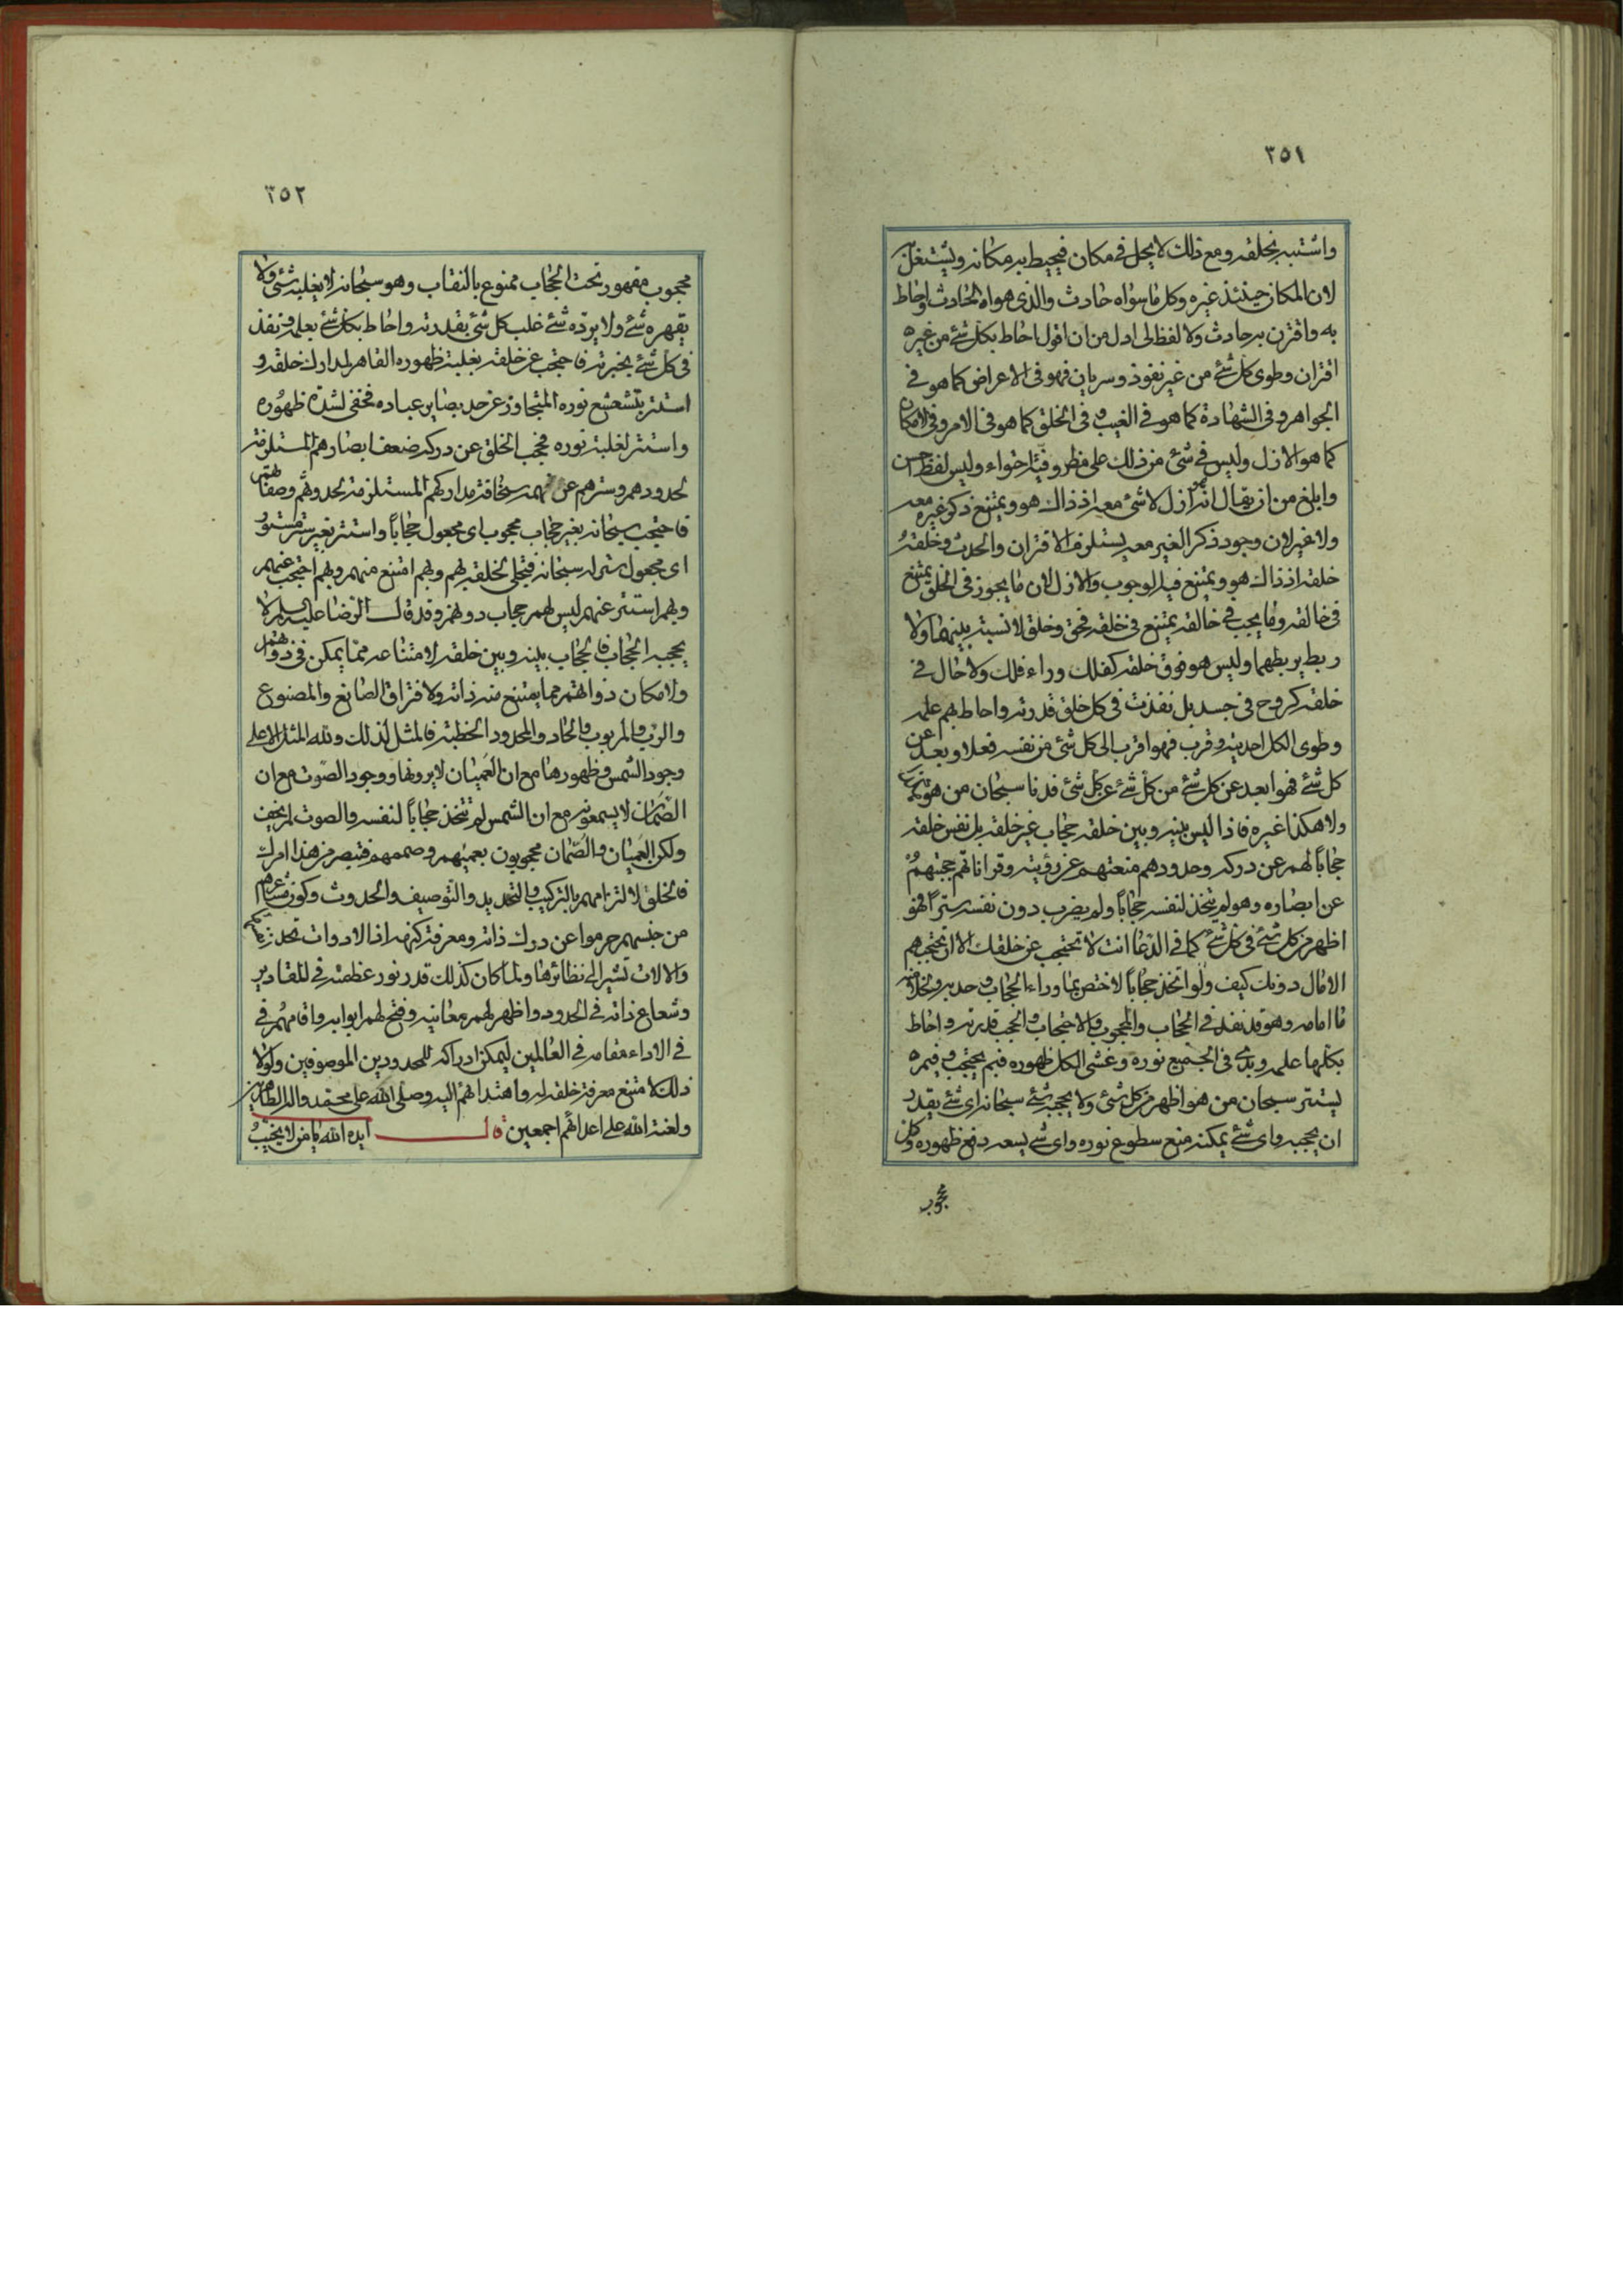 ٢٥١
واشتبه بخلقه ومع ذلك لا يحل في مكان فيحيط به مكانه ويشتغل
لان المكان حينئذ غيره وكل ما سواه حادث والذي هواه الحادث واحاط
به واقترن به حادث ولا لفظ لي ادل من ان اقول احاط بكل شئ من غير
اقتران وطوى كل شئ من غير نفوذ وسريان فهو في الاعراض كما هو في
الجواهر وفي الشهادة كما هو في الغيب وفي الخلق كما هو في الامر وفي الامكان
كما هو الازل وليس في شئ من ذلك على مظروفية احتواء وليس لفظ احسن
وابلغ من ان يقال انه ازل لا شئ معه اذ ذاك هو ويمتنع ذكر غيره معه
ولا غير لان وجود ذكر الغير معه يستلزم الاقتران والحدث وخلقه
خلقه اذ ذاك هو ويمتنع فيه الوجوب والازل لان ما يجوز في الخلق يمتنع
في خالقه وما يجب في خالقه يمتنع في خلقه فحق وخلق لا نسبة بينهما ولا
ربط يربطهما وليس هو فوق خلقه كفلك وراء فلك ولا حال في
خلقه كروح في جسد بل نفذت في كل خلق قدرته واحاط بهم علمه
وطوى الكل احديته وقرب فهو اقرب الى كل شئ من نفسه فعلا وبعد عن
كل شئ فهو ابعد عن كل شئ من كل شئ عن كل شئ فدنا سبحان من هو
ولا هكذا غيره فاذا ليس بينه وبين خلقه حجاب غير خلقه بل نفس خلقه
حجابا لهم عن دركه وحدودهم منعتهم عن رؤيته وقراناتهم حجبتهم
عن ابصاره وهو لم يتخذ لنفسه حجابا ولم يضرب دون نفسه سترا فهو
اظهر من كل شئ في كل شئ كما في الدعا انت لا تحتجب عن خلقك الا ان تحجبهم
الامال دونك كيف ولو اتخذ حجابا لاختص بما وراء الحجاب وحد به وخلا منه
ما امامه وهو قد نفذ في الحجاب والمحجوب والاحتجاب والحجب قدرته واحاط
بكلها علمه وبدى في الجميع نوره وغشى الكل ظهوره فبم يحتجب وفيم
يستتر سبحان من هو اظهر من كل شئ ولا يحجبه شئ سبحانه اى شئ يقدر
ان يحجبه واى شئ يمكنه منع سطوع نوره واى شئ يسعه دفع ظهوره وكل
محجوب
٢٥٢
محجوب مقهور تحت الحجاب ممنوع بالنقاب وهو سبحانه لا يغلبه شئ ولا
يقهره شئ ولا يرده شئ غلب كل شئ بقدرته واحاط بكل شئ بعلمه ونفذ
في كل شئ بخبرته فاحتجب عن خلقه بغلبة ظهوره القاهر لمدارك خلقه و
استتر بتشعشع نوره المتجاوز عن حد بصاير عباده فخفى لشدة ظهوره
واستتر لغلبة نوره فحجب الخلق عن دركه ضعف ابصارهم المستلزمة
لحدودهم وسترهم عن فهمه سخافة مداركهم المستلزمة لحدوثهم وصفاتهم
فاحتجب سبحانه بغير حجاب محجوب اى مجعول حجابا واستتر بغير ستر مستور
اى مجعول ستر له سبحانه فتجلى لخلقه بهم وبهم امتنع منهم وبهم احتجب عنهم
وبهم استتر عنهم ليس لهم حجاب دونهم وقد قال الرضا عليه السلام لا
يحجبه الحجاب فالحجاب بينه وبين خلقه لامتناعه مما يمكن في ذواتهم
ولامكان ذواتهم مما يمتنع منه ذاته ولافتراق الصانع والمصنوع
والرب والمربوب والحاد والمحدود الخطبة فالمثل لذلك ولله المثل الاعلى
وجود الشمس وظهورها مع ان العميان لا يرونها ووجود الصوت مع ان
الصمان لا يسمعونه مع ان الشمس لم تتخذ حجابا لنفسه والصوت لم يخف
ولكن العميان والصمان محجوبون بعميهم وصممهم فتبصر من هذا امرك
فالخلق لالتزامهم بالتركيب والتحديد والتوصيف والحدوث وكون مشاعرهم
من جنسهم حرموا عن درك ذاته ومعرفة كنهه اذ الادوات تحد
والالات تشير الى نظائرها ولما كان كذلك قدر نور عظمته في المقادير
وشعاع ذاته في الحدود واظهر لهم معانيه وفتح لهم ابوابه واقامهم في
في الاداء مقامه في العالمين ليمكن ادراكه للمحدودين الموصوفين ولولا
ذلك لامتنع معرفة خلقه له واهتدائهم اليه وصلى الله على محمد واله الطاهرين
ولعنة الله على اعدائهم اجمعين قال ايده الله يا من لا يخيب